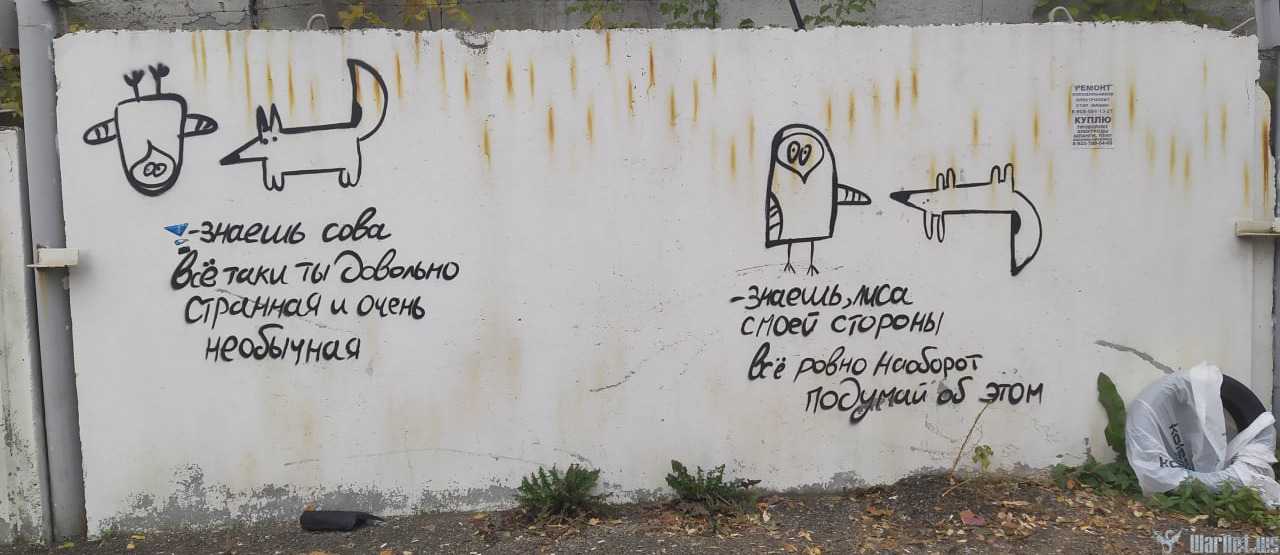 -знаешь сова
всё таки ты довольно
странная и очень
необычная
-знаешь, лиса
с моей стороны
всё ровно наоборот
подумай об этом
РЕМОНТ
ХОЛОДИЛЬНИКОВ
ЭЛЕКТРОПЛИТ
СТИР. МАШИН
КУПЛЮ
ЭЛЕКТРОДЫ
WarNet.ws